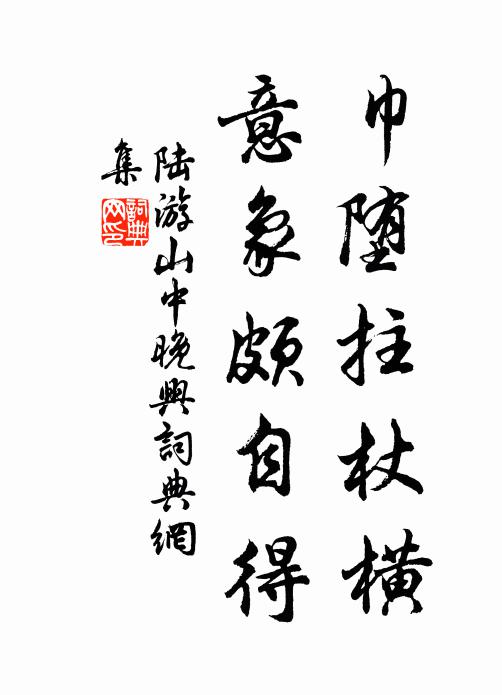 巾堕拄杖横
意象頗自得
陆游山中晚興詞典網
集
詞典
网印